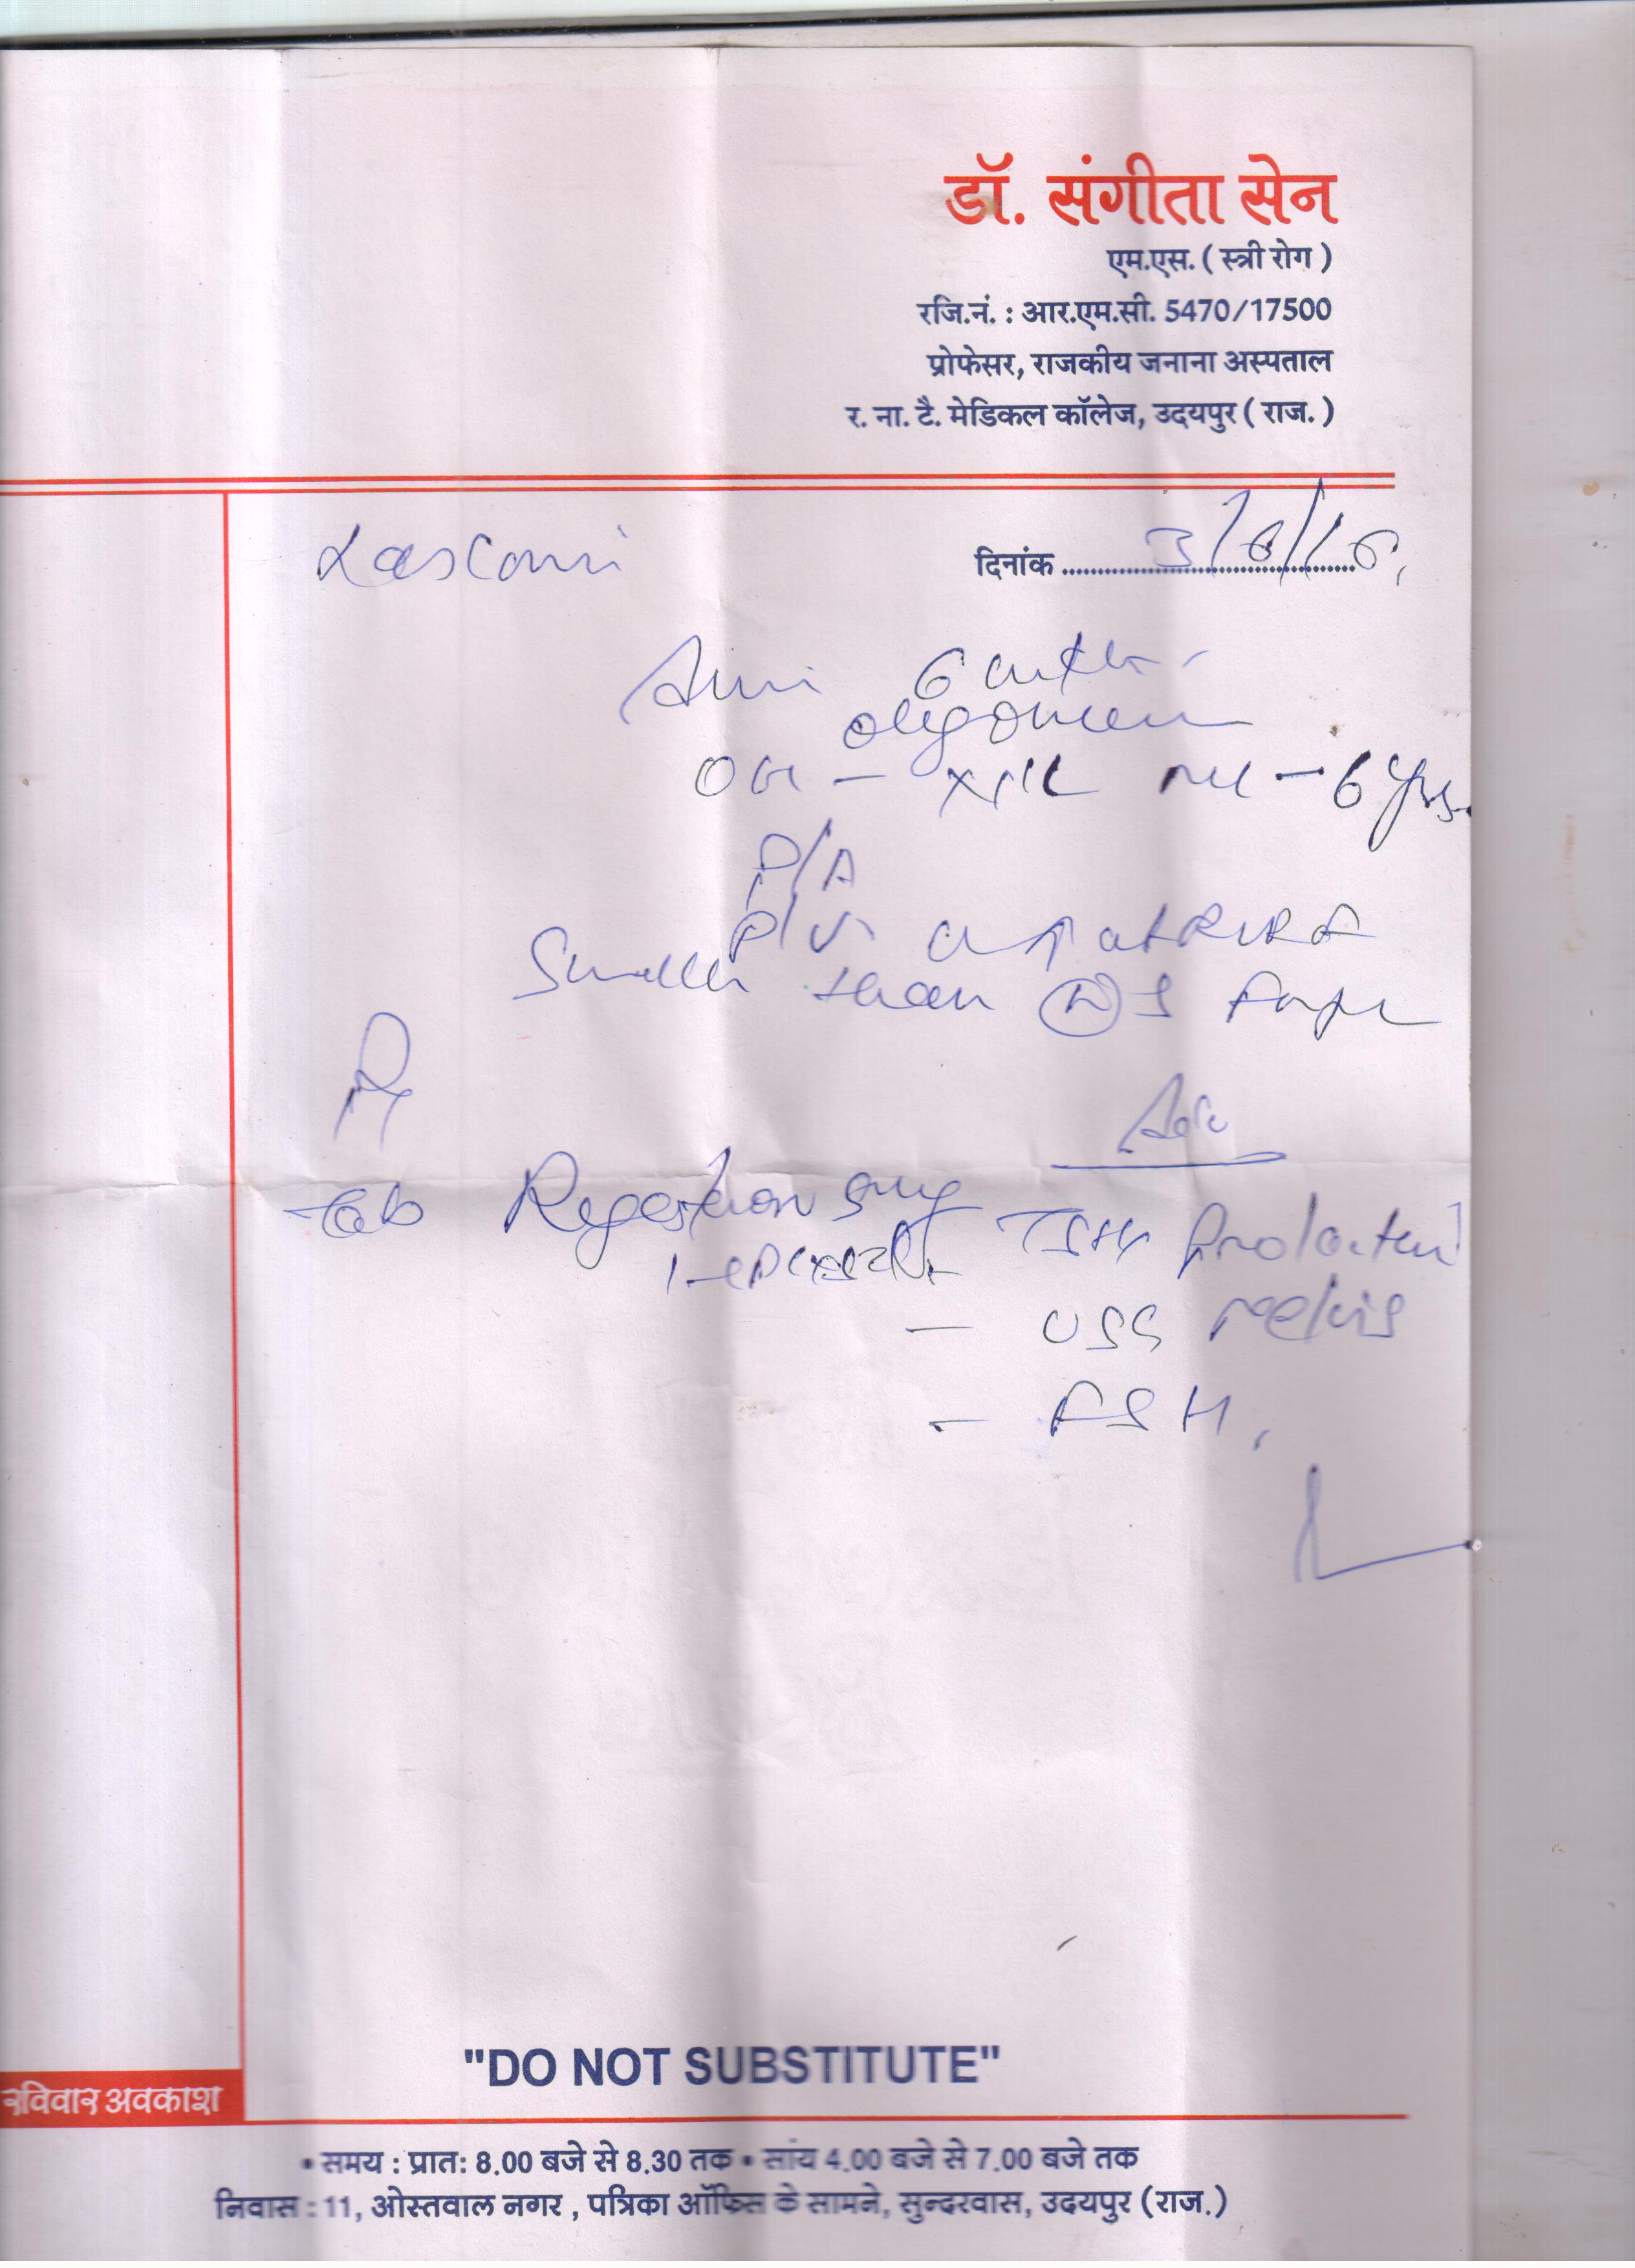 डॉ. संगीता सेन
एम.एस. ( स्त्री रोग )
रजि.नं. : आर.एम.सी. 5470/17500
प्रोफेसर, राजकीय जनाना अस्पताल
र. ना. टै. मेडिकल कॉलेज, उदयपुर ( राज. )
दिनांक 3/6/16
6
- 6 yrs.
P/A
P/V
Smaller than (N) S
Rx
Adv
Tab Regesterone 5mg TSH Prolactin
- USG Pelvis
- FSH,
"DO NOT SUBSTITUTE"
रविवार अवकाश
• समय : प्रातः 8.00 बजे से 8.30 तक • सांय 4.00 बजे से 7.00 बजे तक
निवास : 11, ओस्तवाल नगर , पत्रिका ऑफिस के सामने, सुन्दरवास, उदयपुर (राज.)